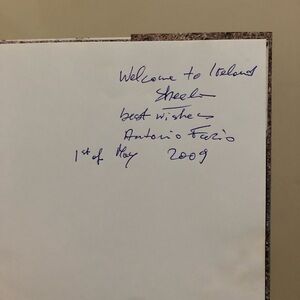 Welcome to Ireland
best wishes
Antonio Fazio
1st of May 2009